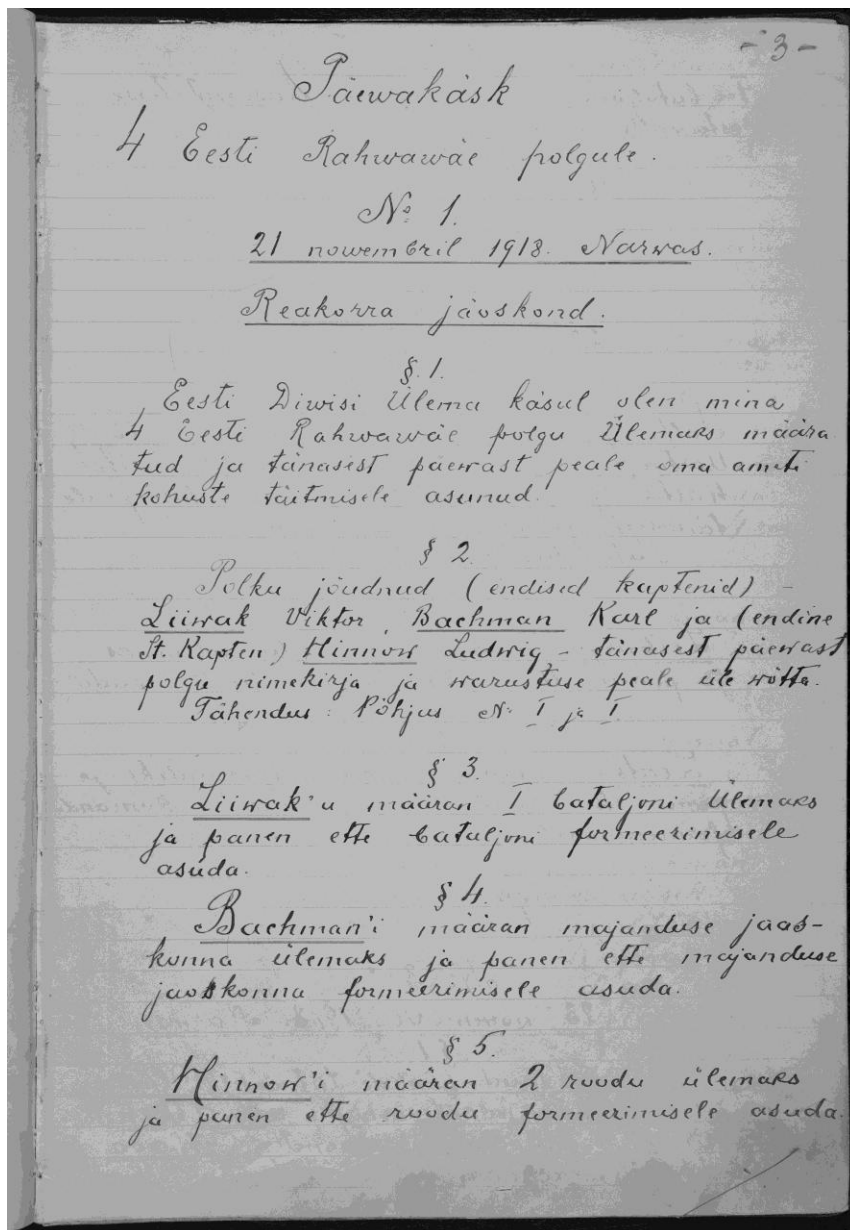 - 3 -
Päewakäsk
4 Eesti Rahwawäe polgule.
№ 1.
21 nowembril 1918. Narwas.
Reakorra jäoskond.
§. 1.
Eesti Diwisi Ülema käsul olen mina
4 Eesti Rahwawäe polgu Ülemaks määra
tud ja tänasest päewast peale oma ameti
kohuste täitmisele asunud.
§ 2.
Polku jõudnud (endised kaptenid) -
Liiwak Viktor, Bachman Karl ja (endine
St. Kapten) Hinnow Ludwig - tänasest päewast
polgu nimekirja ja warustuse peale üle wõtta.
Tähendus: Põhjus № I ja I
§ 3.
Liiwak'u määran I bataljoni Ülemaks
ja panen ette bataljoni formeerimisele
asuda.
§ 4.
Bachman'i määran majanduse jaos-
konna ülemaks ja panen ette majanduse
jaoskonna formeerimisele asuda.
§ 5.
Hinnow'i määran 2 roodu ülemaks
ja panen ette roodu formeerimisele asuda.